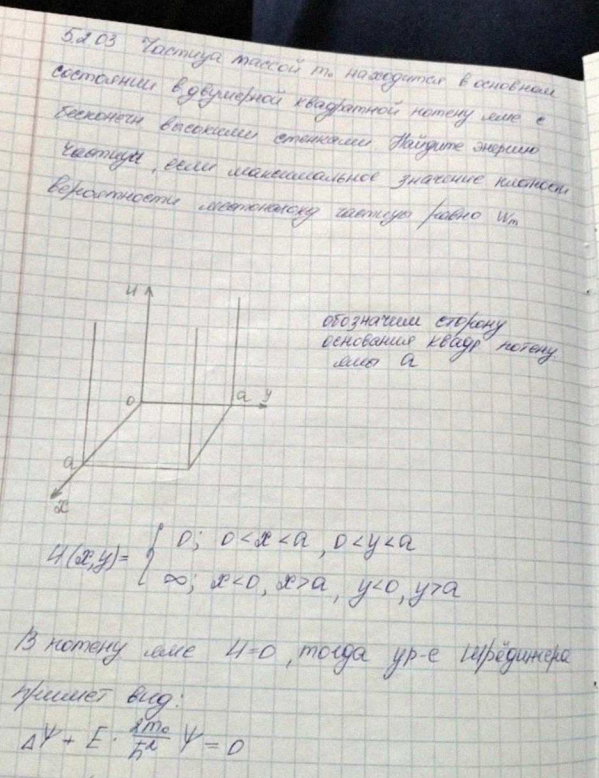 5.2.03 Частица массой m₀ находится в основном
состоянии в двумерной квадратной потенц яме с
бесконечн высокими стенками Найдите энергию
частицы, если максимальное значение плотности
вероятности местонахожд частицы равно Wm
U
обозначим сторону
основания квадр потенц
ямы a
0
a
y
a
x
U(x,y)= { 0; 0<x<a, 0<y<a
∞; x<0, x>a, y<0, y>a
В потенц яме U=0, тогда ур-е Шрёдингера
примет вид:
ΔΨ + E · 2m₀/ħ² Ψ = 0